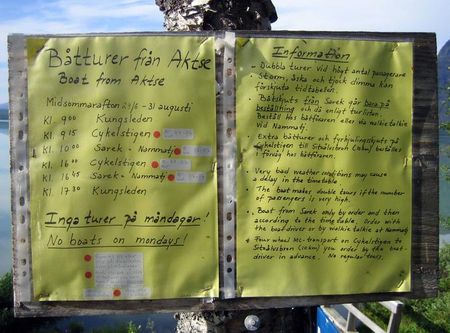 Båtturer från Aktse
Boat from Aktse
Midsommarafton - 31 augusti
Kl. 9 00 Kungsleden
Kl. 9 15 Cykelstigen
Kl. 10 00 Sarek - Nammatj
Kl. 16 00 Cykelstigen
Kl. 16 45 Sarek - Nammatj
Kl. 17 30 Kungsleden
Inga turer på måndagar!
No boats on mondays!
Information
- Dubbla turer vid högt antal passagerare
- Storm, åska och tjock dimma kan
förskjuta tidtabellen.
- Båtskjuts från Sarek går bara på
beställning och då enligt turlistan.
Beställ hos båtföraren eller via walkie talkie
vid Nammatj.
- Extra båtturer och fyrhjulingskjuts på
Cykelstigen till Sitoälvsbron beställes
i förväg hos båtföraren.
- Very bad weather conditions may cause
a delay in the timetable
- The boat makes double tours if the number
of passengers is very high.
- Boat from Sarek only by order and then
according to the timetable. Order with
the boatdriver or by walkie talkie at Nammatj
- Four wheel MC-transport on Cykelstigen to
Sitoälvsbron you order by the boat
driver in advance. No regular tours.